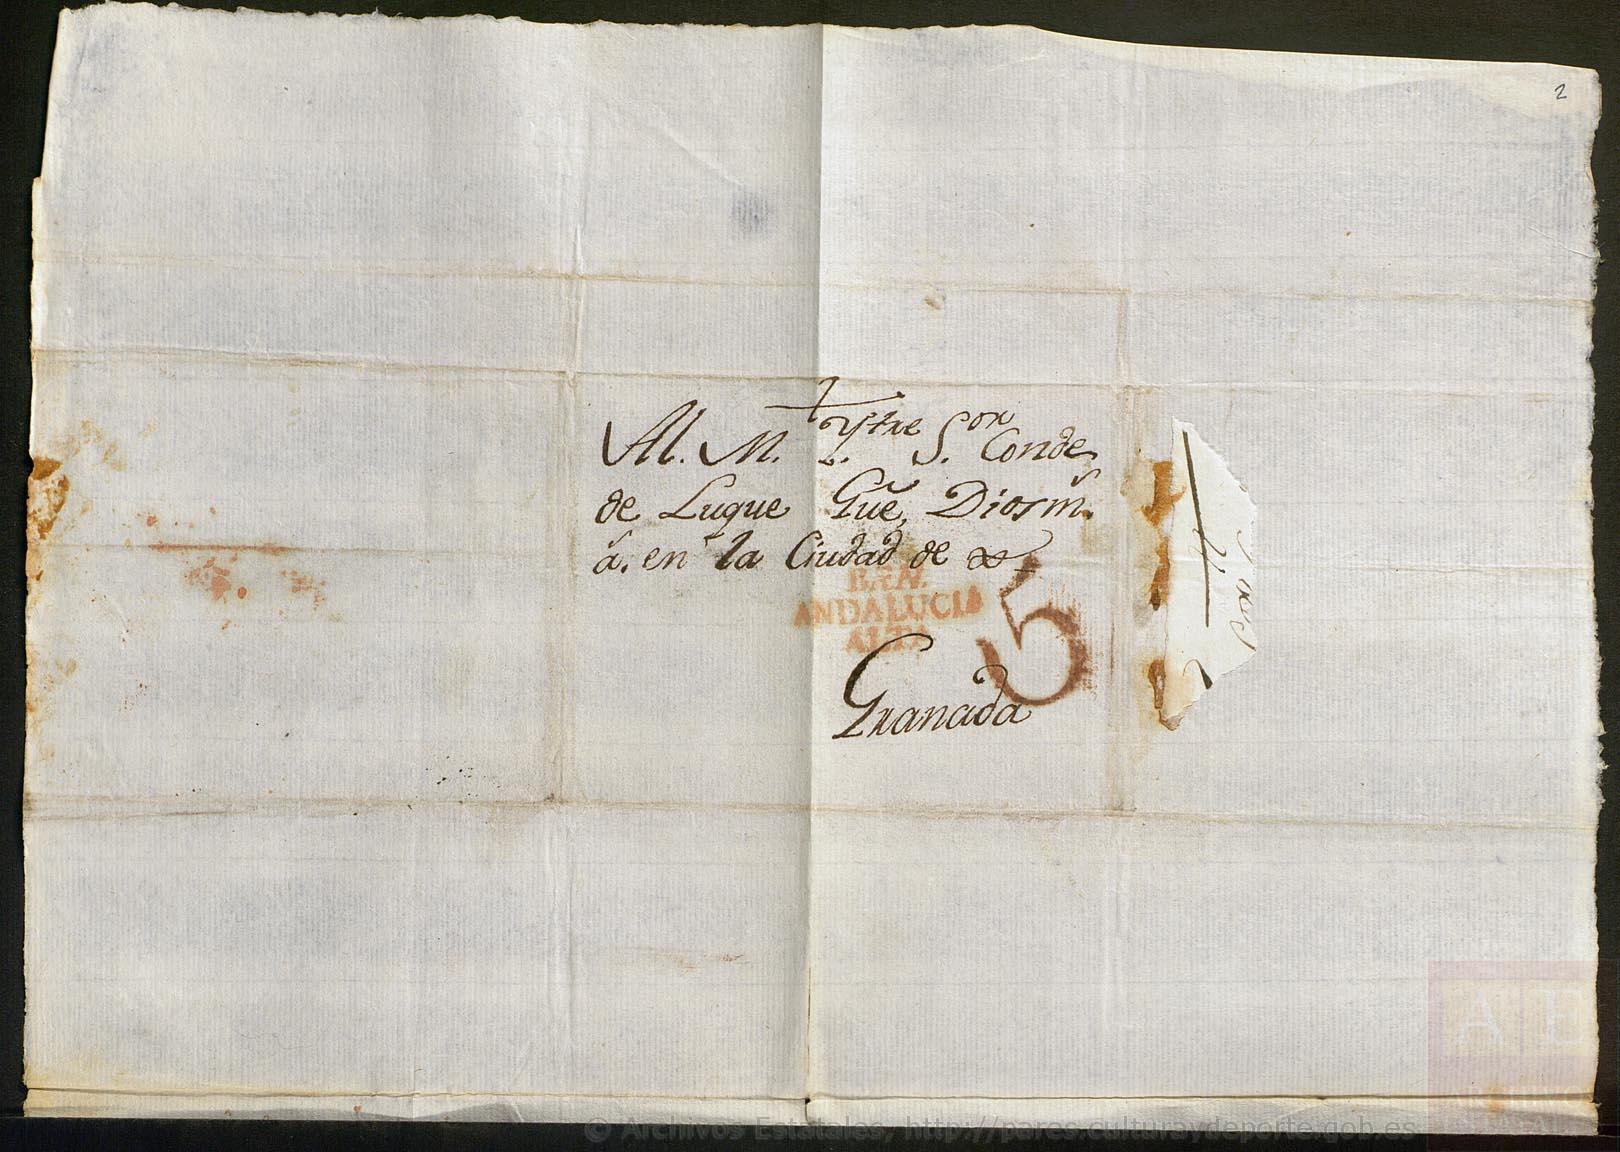 2
Al. M. Yltre S.or Conde
de Luque Gue, Dios m.s
a.s en la Ciudad de
BAN.
ANDALUCIA
ALTA
5
Granada
AE
© Archivos Estatales, http://pares.culturaydeporte.gob.es